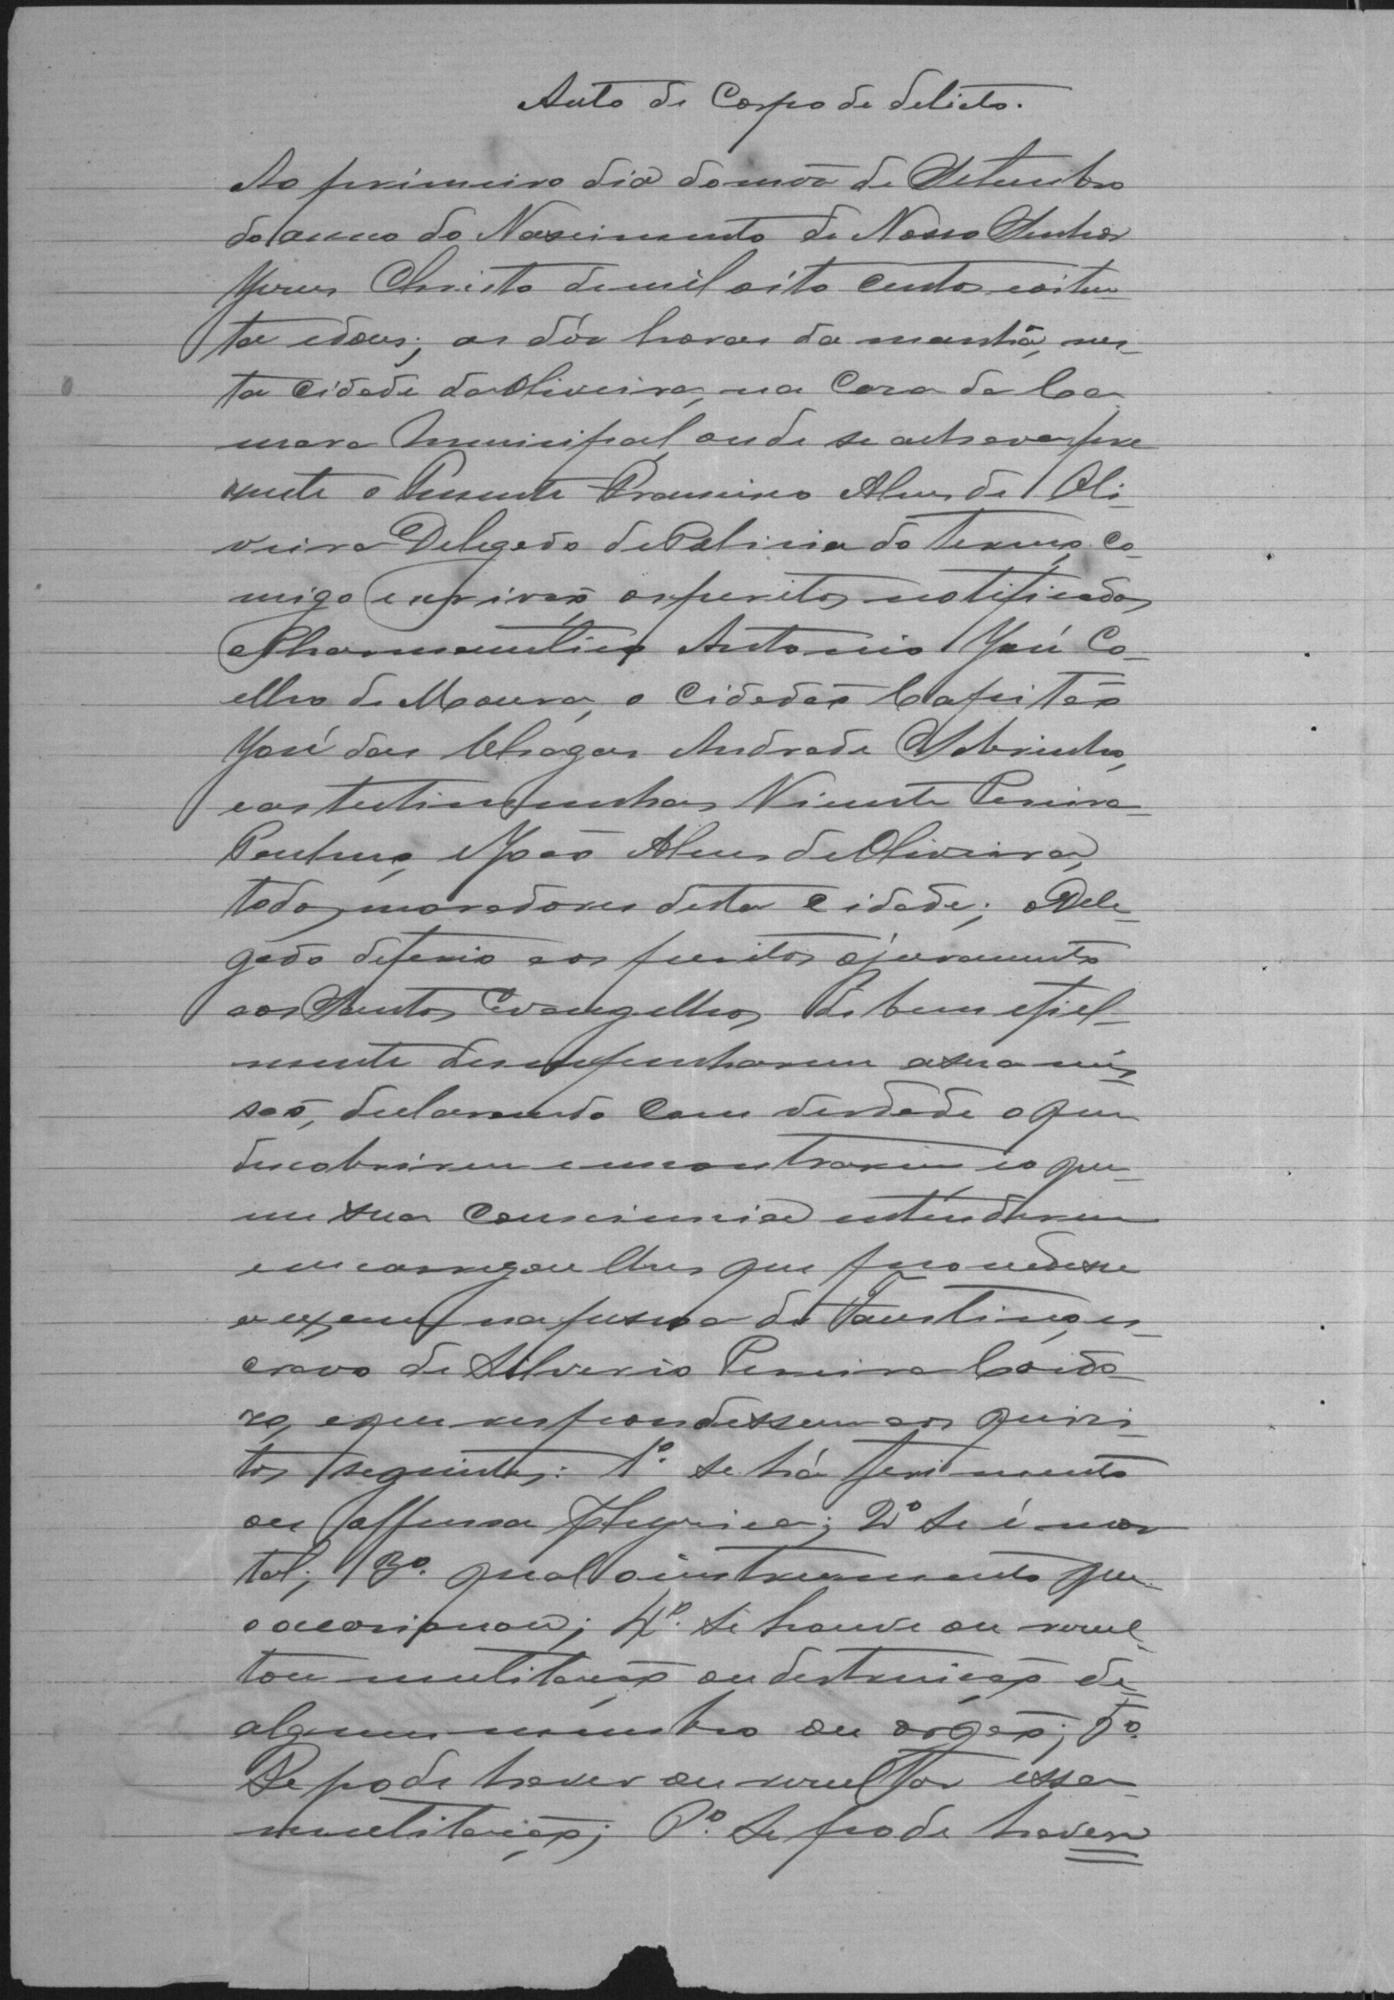 Auto de Corpo de delicto.
Ao primeiro dia do mez de Setembro
do anno do Nascimento de Nosso Senhor
Jesus Christo de mil oito centos e oiten-
ta e dous; as dés horas da manhã, nes-
ta Cidade da Oliveira, na Casa da Ca-
mara Municipal, onde se achava pre
zente o Tenente Francisco Alves de Oli-
veira Delegado de Policia do termo, co-
migo escrivão, os peritos notificados
Pharmaceutico Antonio José Co-
elho de Moura, o Cidadão Capitão
José das Chagas Andrade Sobrinho,
e as testimunhas Vicente Pereira
e João Alves de Oliveira,
todos moradores desta Cidade; o Dele-
gado deferio aos peritos o juramento
aos Santos Evangelhos de bem e fiel-
mente desempenharem a sua mis-
são, declarando com verdade o que
descobrirem e encontrarem, e o que
em sua consciencia entenderem
e encarregou lhes que procedessem
a exame na pessoa de Faustino, es-
cravo de Silverio Pereira Cardo-
zo, e que respondessem aos quizi-
tos seguintes: 1º. se há ferimento
ou offensa physica; 2º se é mor
tal; 3º. qual o instrumento que
o occasionou; 4º. se houve ou rezul-
tou mutilação ou destruição de
algum membro ou orgão; 5º.
Se pode haver ou rezultar essa
mutilação; 6º. se pode haver